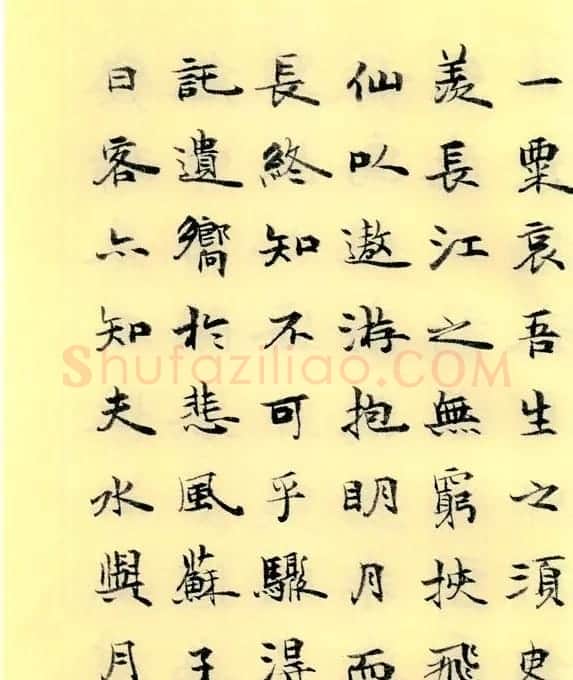 一粟哀吾生之須臾
羨長江之無窮挾飛
仙以遨游抱明月而
長終知不可乎驟得
託遺響於悲風蘇子
曰客亦知夫水與月
Shufaziliao.COM